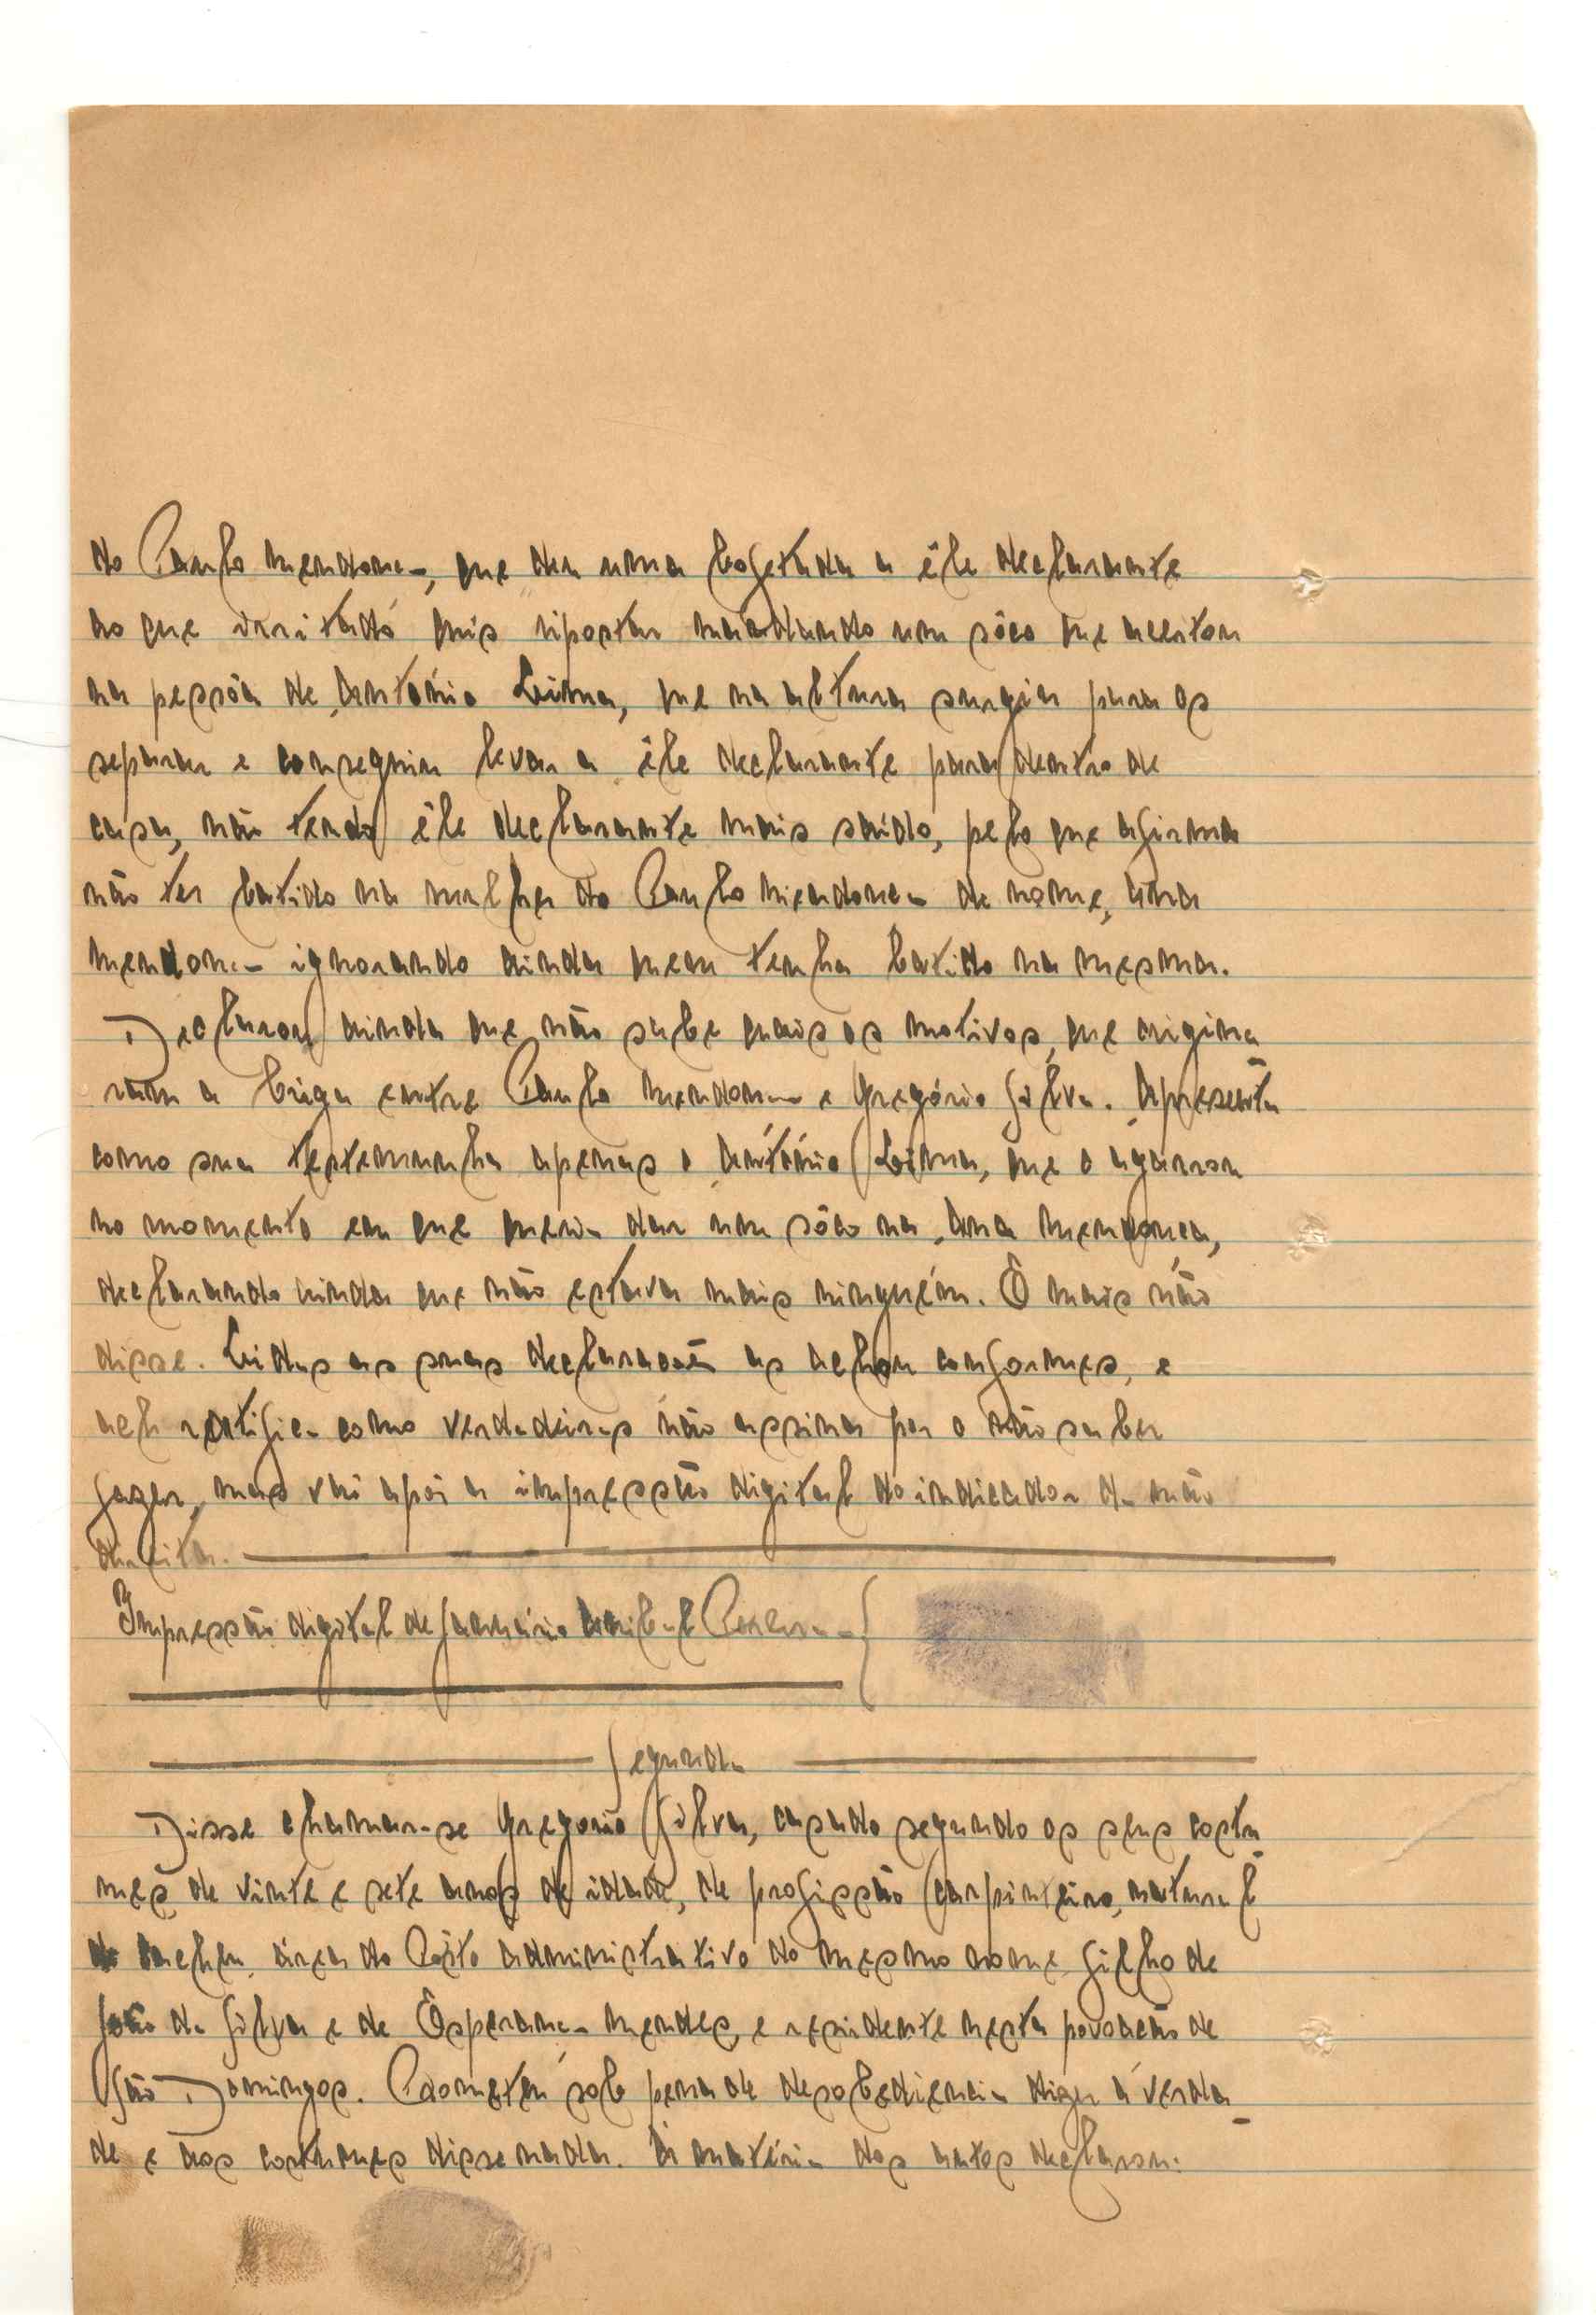 do Paulo Mendonça, que deu uma bofetada a êle declarante
ao que irritado quis ripostar mandando um sôco que acertou
na pessôa de António Lima, que na altura surgiu para os
separar e conseguiu levar a êle declarante para dentro de
casa, não tendo êle declarante mais saído, pelo que afirma
não ter batido na mulher do Paulo Mendonça de nome, Ana
Mendonça ignorando ainda quem tenha batido na mesma.
Declarou ainda que não sabe quais os motivos, que origina
ram a briga entre Paulo Mendonça e Gregório Silva. Apresenta
como sua testemunha apenas o António Lima, que o agarrou
no momento em que queria dar um sôco na Ana Mendonça,
declarando ainda que não estava mais ninguém. E mais não
disse. Lidas as suas declarações as achou conformes, e
ratifica como verdadeiras não assina por o não saber
fazer, mas vai apôr a impressão digital do indicador da mão
direita.
Impressão digital de Januário Correia
Segunda
Disse chamar-se Gregorio Silva, casado segundo os seus costu
mes de vinte e sete anos de idade, de profissão carpinteiro, natural
de Cacheu, área do Pôsto administrativo do mesmo nome, filho de
João da Silva e de Esperança Mendes, e residente nesta povoação de
São Domingos. Prometeu sob pena de desobediencia dizer a verda
de e aos costumes disse nada. Á matéria dos autos declarou: